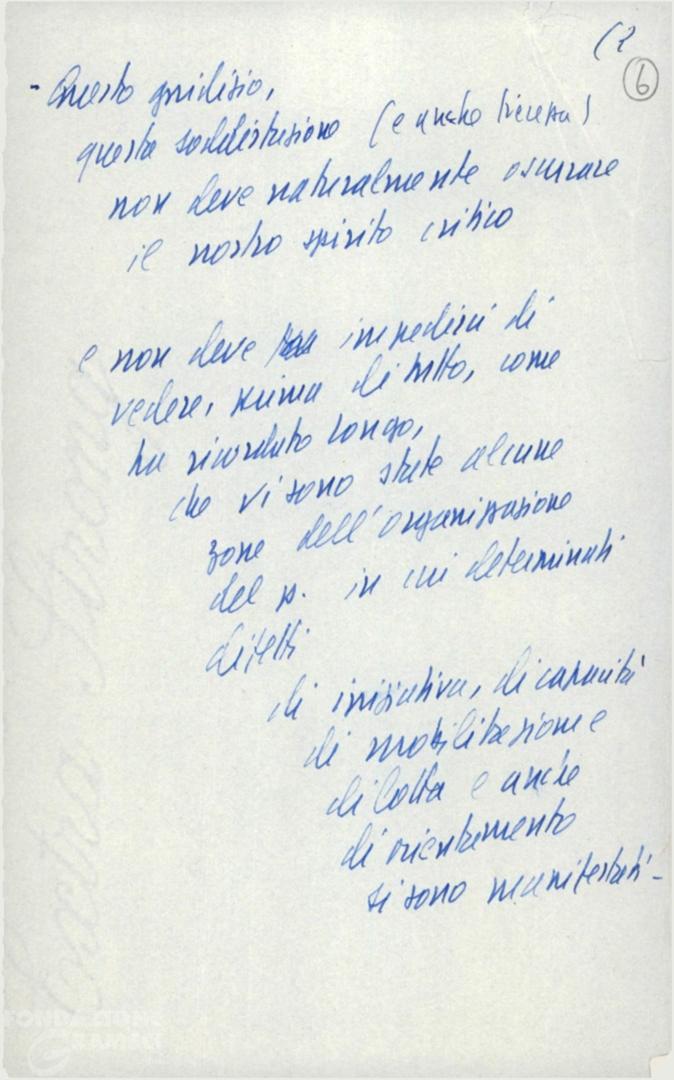 (2
6
- Questo giudizio,
questa soddisfazione (e anche fierezza)
non deve naturalmente oscurare
il nostro spirito critico
e non deve impedirci di
vedere, prima di tutto, come
ha ricordato Longo,
che vi sono state alcune
zone dell'organizzazione
del p. in cui determinati
difetti
di iniziativa, di capacità
di mobilitazione e
di lotta e anche
di orientamento
si sono manifestati -
Extra Strong
FONDAZIONE
GRAMSCI